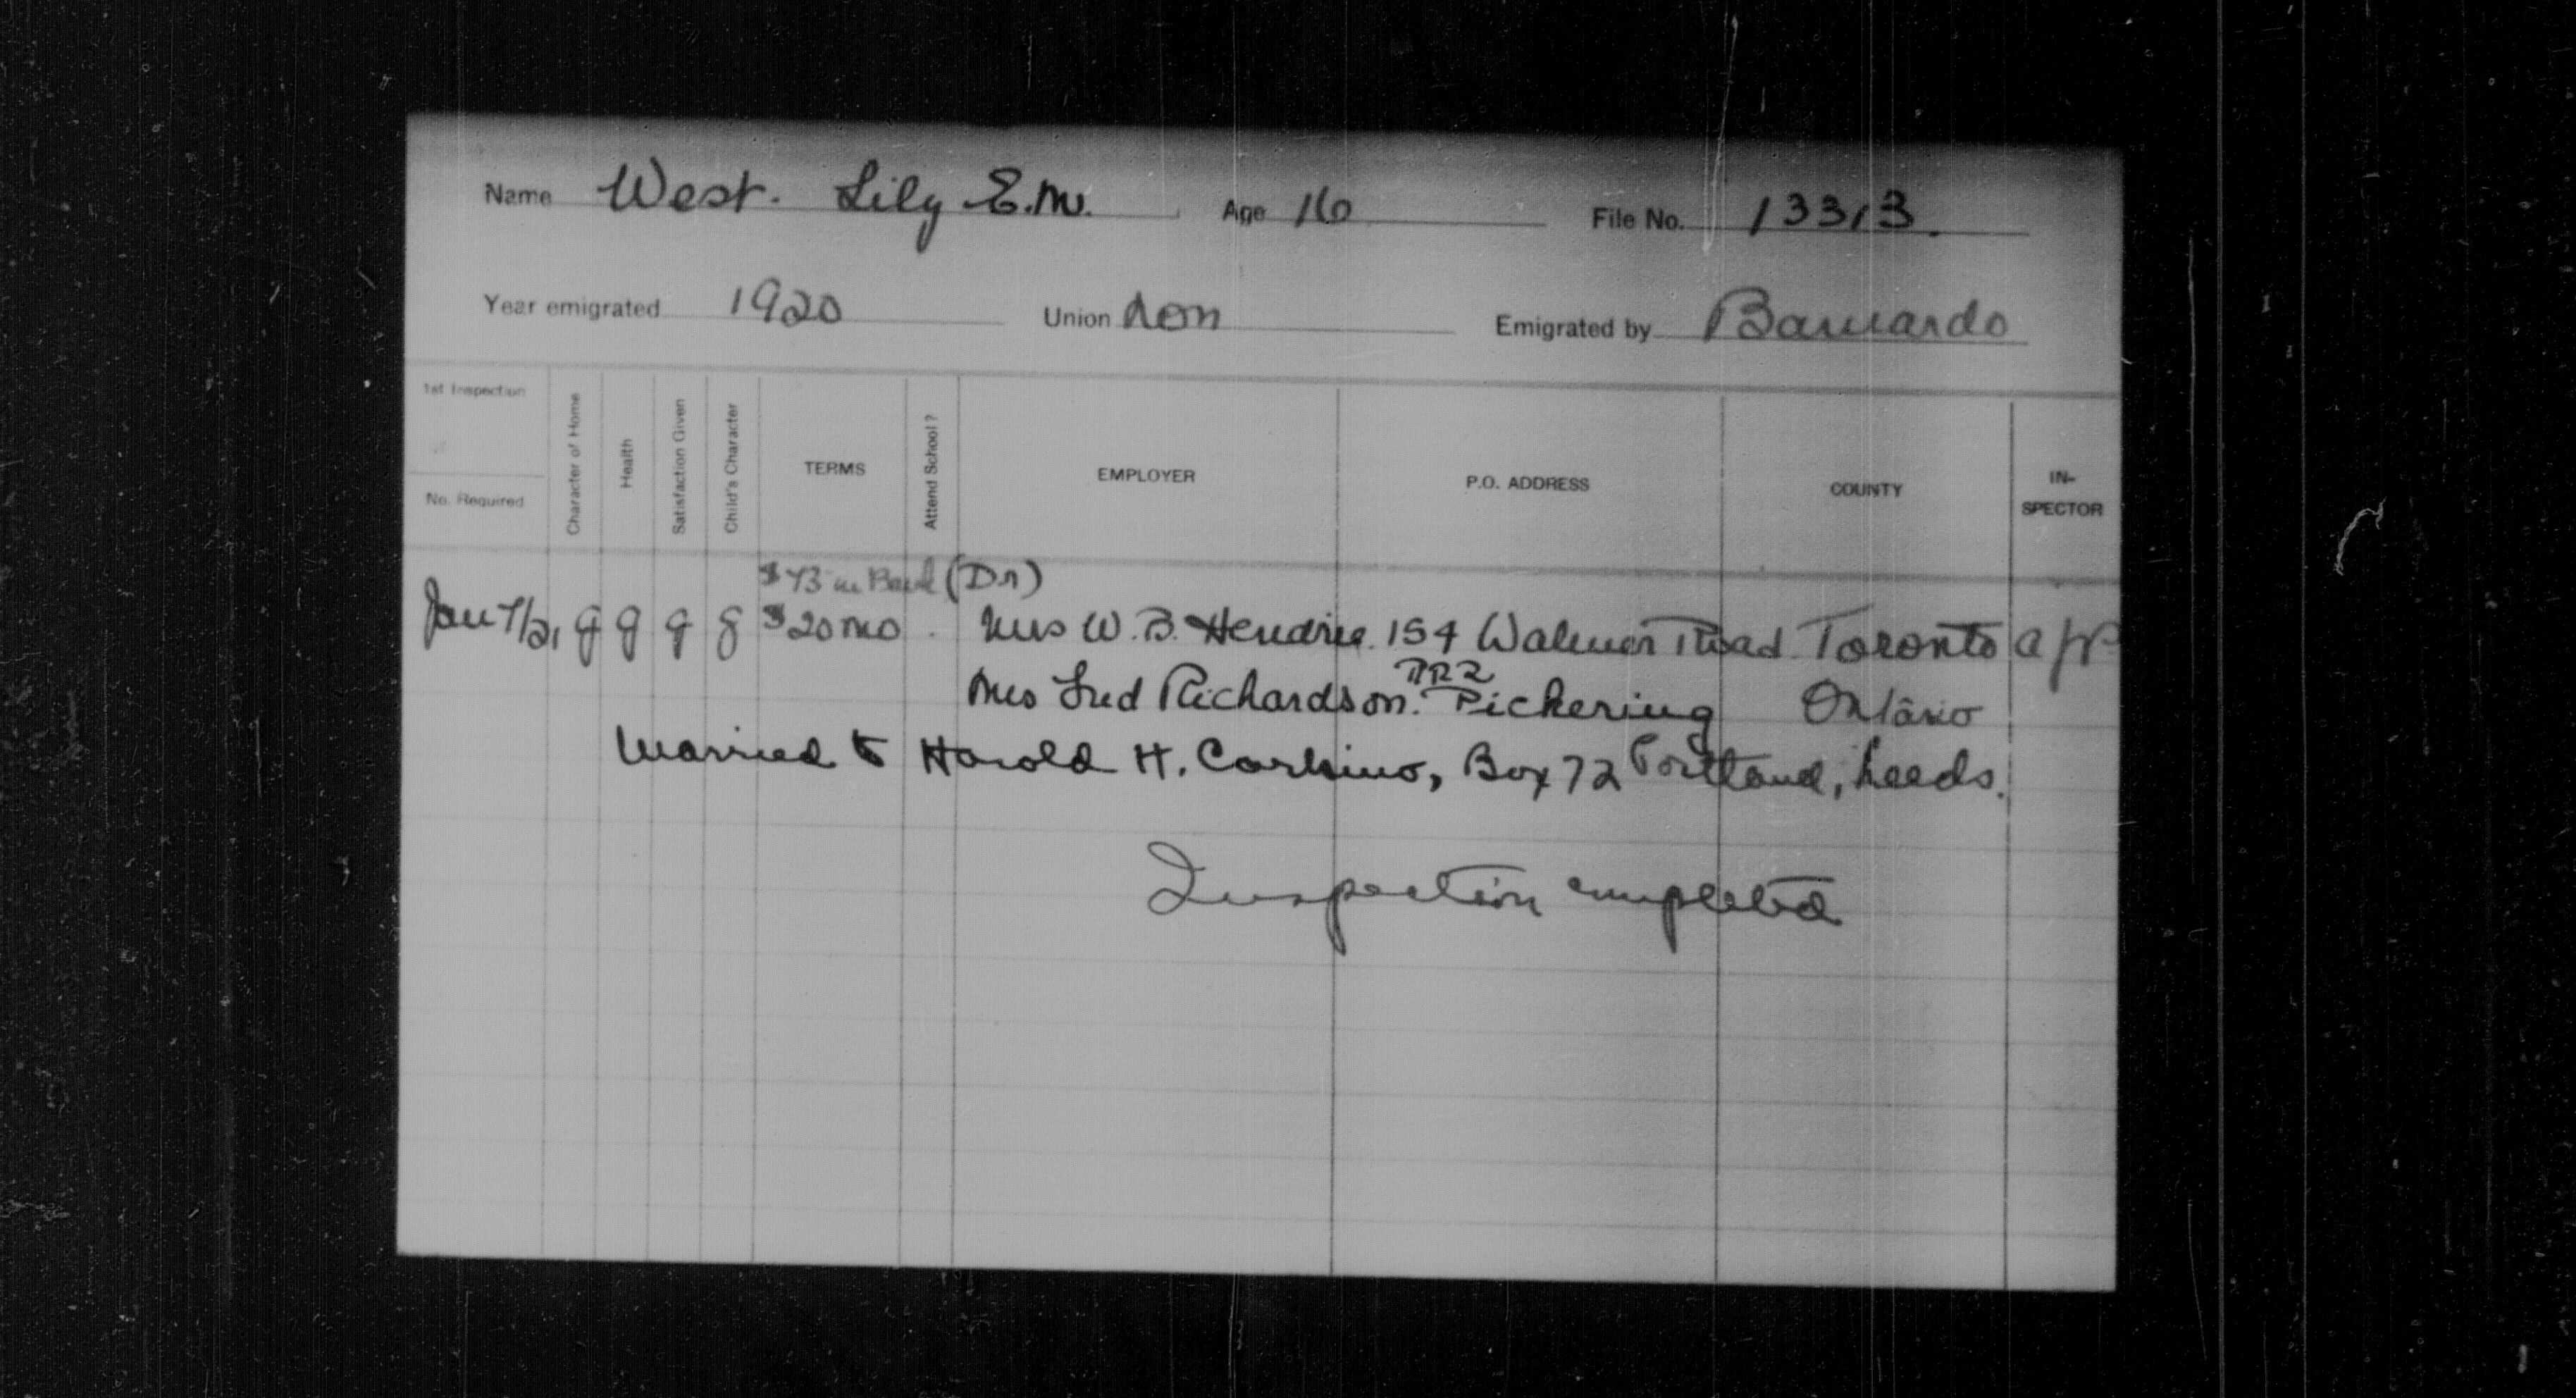 Name West. Lily E.M. Age 16 File No. 13313.
Year emigrated 1920 Union non Emigrated by Barnardo
1st Inspection
No. Required
Character of Home
Health
Satisfaction Given
Child's Character
TERMS
Attend School?
EMPLOYER
P.O. ADDRESS
COUNTY
IN-
SPECTOR
$73 in Bank (Dr)
Jan 7/21 g g g g $20 mo. Mrs W. B. Hendrie. 154 Walmer Road Toronto
RR2
Mrs Fred Richardson. Pickering Ontario
Married to Harold H. Corkins, Box 72 Portland, Leeds.
Inspection completed